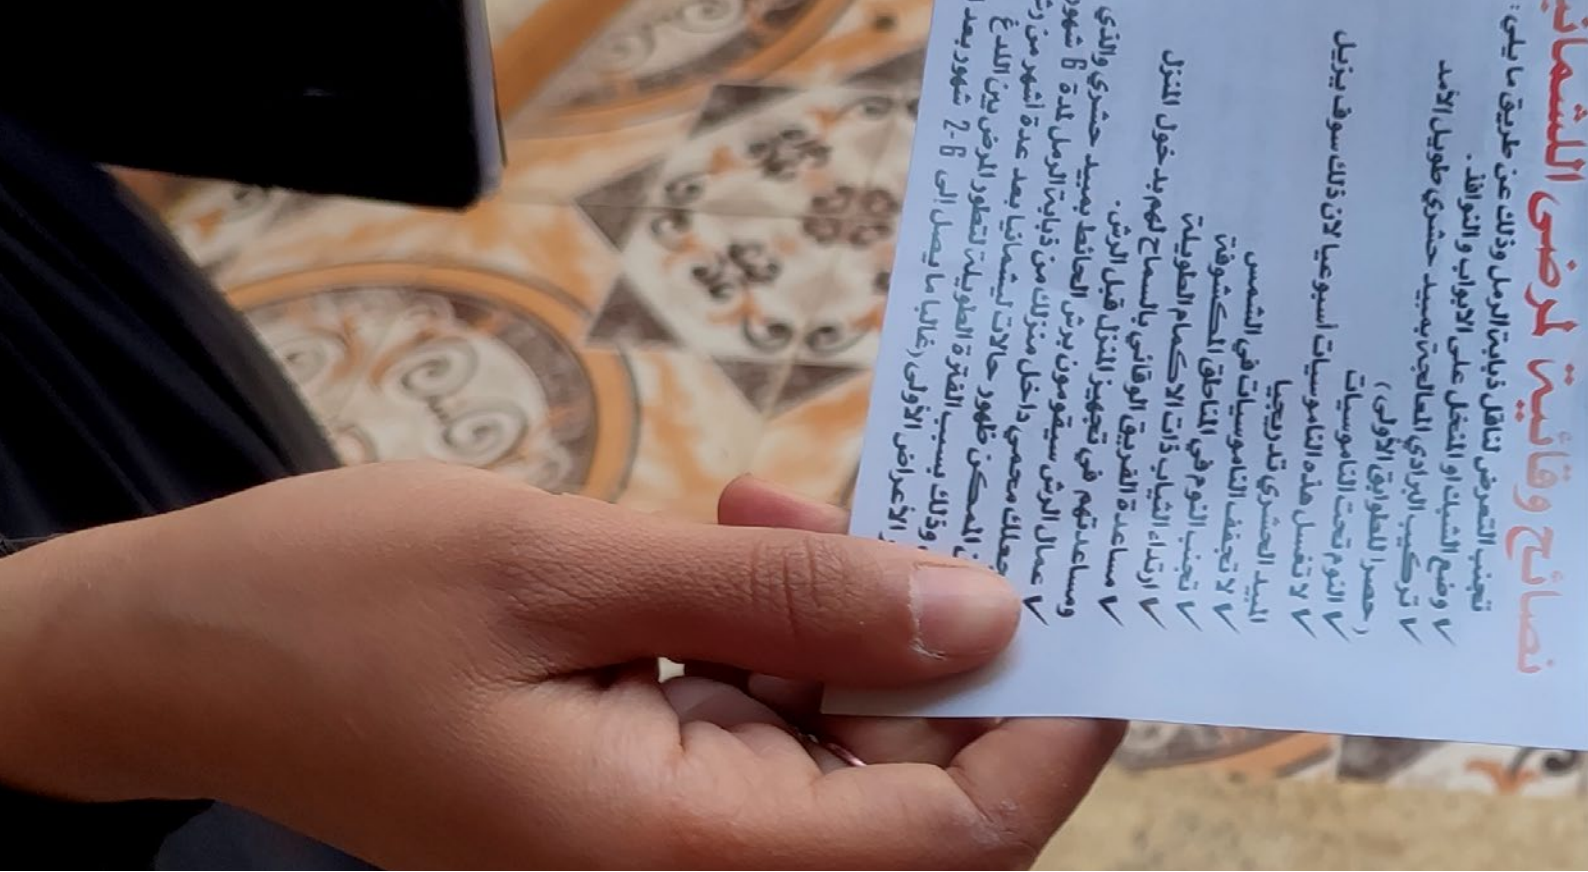 نصائح وقائية لمرضى اللشمانيا
تجنب التعرض لناقل ذبابة الرمل وذلك عن طريق ما يلي :
✓ وضع الشبك او المنخل على الابواب و النوافذ .
✓ تركيب البرادي المعالجة بمبيد حشري طويل الأمد
(حصرا للطوابق الأولى)
✓ النوم تحت الناموسيات
✓ لا تغسل هذه الناموسيات أسبوعيا لان ذلك سوف يزيل
المبيد الحشري تدريجيا
✓ لا تجفف الناموسيات في الشمس
✓ تجنب النوم في المناطق المكشوفة
✓ ارتداء الثياب ذات الاكمام الطويلة
✓ مساعدة الفريق الوقائي بالسماح لهم بدخول المنزل
ومساعدتهم في تجهيز المنزل قبل الرش .
✓ عمال الرش سيقومون برش الحائط بمبيد حشري والذي
منزلك من ذبابة الرمل لمدة 6 شهور
محمي داخل منزلك
الممكن ظهور حالات ليشمانيا بعد عدة أشهر من
وذلك بسبب الفترة الطويلة لتطور المرض بين اللدغ
الأعراض الأولى (غالبا ما يصل إلى 2-6 شهور بعد